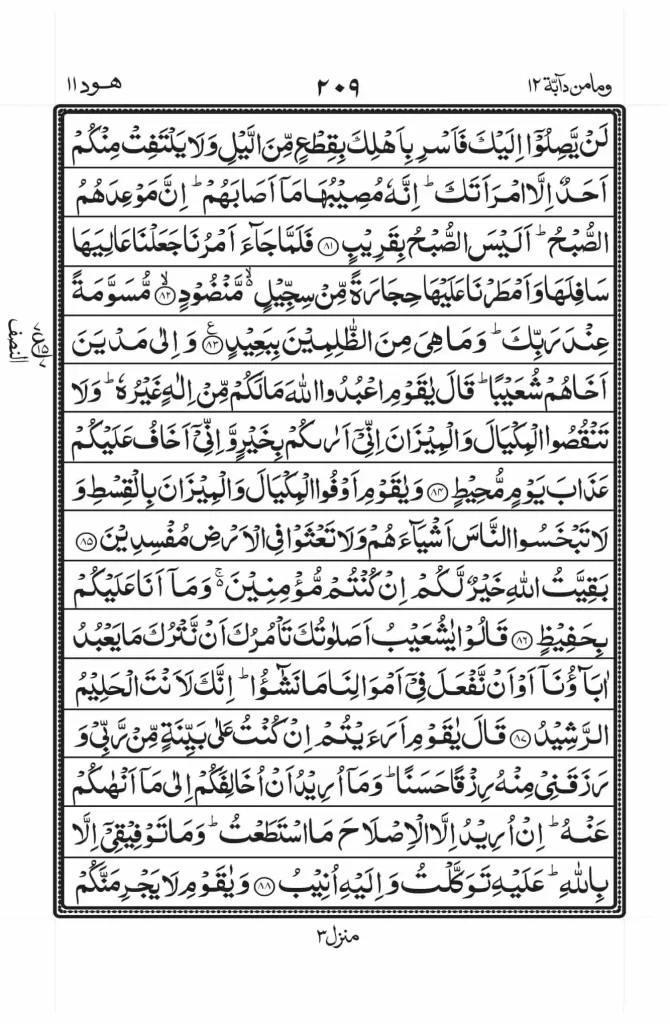 وما من دآبة ١٢
٢٠٩
هود ١١
لَنۡ يَّصِلُوۡۤا اِلَيۡكَ فَاَسۡرِ بِاَهۡلِكَ بِقِطۡعٍ مِّنَ الَّيۡلِ وَلَا يَلۡتَفِتۡ مِنۡكُمۡ
اَحَدٌ اِلَّا امۡرَاَتَكَ ؕ اِنَّهٗ مُصِيۡبُهَا مَاۤ اَصَابَهُمۡ ؕ اِنَّ مَوۡعِدَهُمُ
الصُّبۡحُ ؕ اَلَيۡسَ الصُّبۡحُ بِقَرِيۡبٍ ﴿٨١﴾ فَلَمَّا جَآءَ اَمۡرُنَا جَعَلۡنَا عَالِيَهَا
سَافِلَهَا وَاَمۡطَرۡنَا عَلَيۡهَا حِجَارَةً مِّنۡ سِجِّيۡلٍ ۙ مَّنۡضُوۡدٍ ۙ﴿٨٢﴾ مُّسَوَّمَةً
عِنۡدَ رَبِّكَ ؕ وَمَا هِىَ مِنَ الظّٰلِمِيۡنَ بِبَعِيۡدٍ ﴿٨٣﴾ ع وَاِلٰى مَدۡيَنَ
النصف
اَخَاهُمۡ شُعَيۡبًا ؕ قَالَ يٰقَوۡمِ اعۡبُدُوا اللّٰهَ مَا لَكُمۡ مِّنۡ اِلٰهٍ غَيۡرُهٗ ؕ وَلَا
تَنۡقُصُوا الۡمِكۡيَالَ وَالۡمِيۡزَانَ اِنِّىۡۤ اَرٰٮكُمۡ بِخَيۡرٍ وَّاِنِّىۡۤ اَخَافُ عَلَيۡكُمۡ
عَذَابَ يَوۡمٍ مُّحِيۡطٍ ﴿٨٤﴾ وَيٰقَوۡمِ اَوۡفُوا الۡمِكۡيَالَ وَالۡمِيۡزَانَ بِالۡقِسۡطِ وَ
لَا تَبۡخَسُوا النَّاسَ اَشۡيَآءَهُمۡ وَلَا تَعۡثَوۡا فِى الۡاَرۡضِ مُفۡسِدِيۡنَ ﴿٨٥﴾
بَقِيَّتُ اللّٰهِ خَيۡرٌ لَّكُمۡ اِنۡ كُنۡتُمۡ مُّؤۡمِنِيۡنَ ۚ وَمَاۤ اَنَا عَلَيۡكُمۡ
بِحَفِيۡظٍ ﴿٨٦﴾ قَالُوۡا يٰشُعَيۡبُ اَصَلٰوتُكَ تَاۡمُرُكَ اَنۡ نَّتۡرُكَ مَا يَعۡبُدُ
اٰبَآؤُنَاۤ اَوۡ اَنۡ نَّفۡعَلَ فِىۡۤ اَمۡوَالِنَا مَا نَشٰٓؤُا ؕ اِنَّكَ لَاَنۡتَ الۡحَلِيۡمُ
الرَّشِيۡدُ ﴿٨٧﴾ قَالَ يٰقَوۡمِ اَرَءَيۡتُمۡ اِنۡ كُنۡتُ عَلٰى بَيِّنَةٍ مِّنۡ رَّبِّىۡ وَ
رَزَقَنِىۡ مِنۡهُ رِزۡقًا حَسَنًا ؕ وَمَاۤ اُرِيۡدُ اَنۡ اُخَالِفَكُمۡ اِلٰى مَاۤ اَنۡهٰٮكُمۡ
عَنۡهُ ؕ اِنۡ اُرِيۡدُ اِلَّا الۡاِصۡلَاحَ مَا اسۡتَطَعۡتُ ؕ وَمَا تَوۡفِيۡقِىۡۤ اِلَّا
بِاللّٰهِ ؕ عَلَيۡهِ تَوَكَّلۡتُ وَاِلَيۡهِ اُنِيۡبُ ﴿٨٨﴾ وَيٰقَوۡمِ لَا يَجۡرِمَنَّكُمۡ
منزل ٣